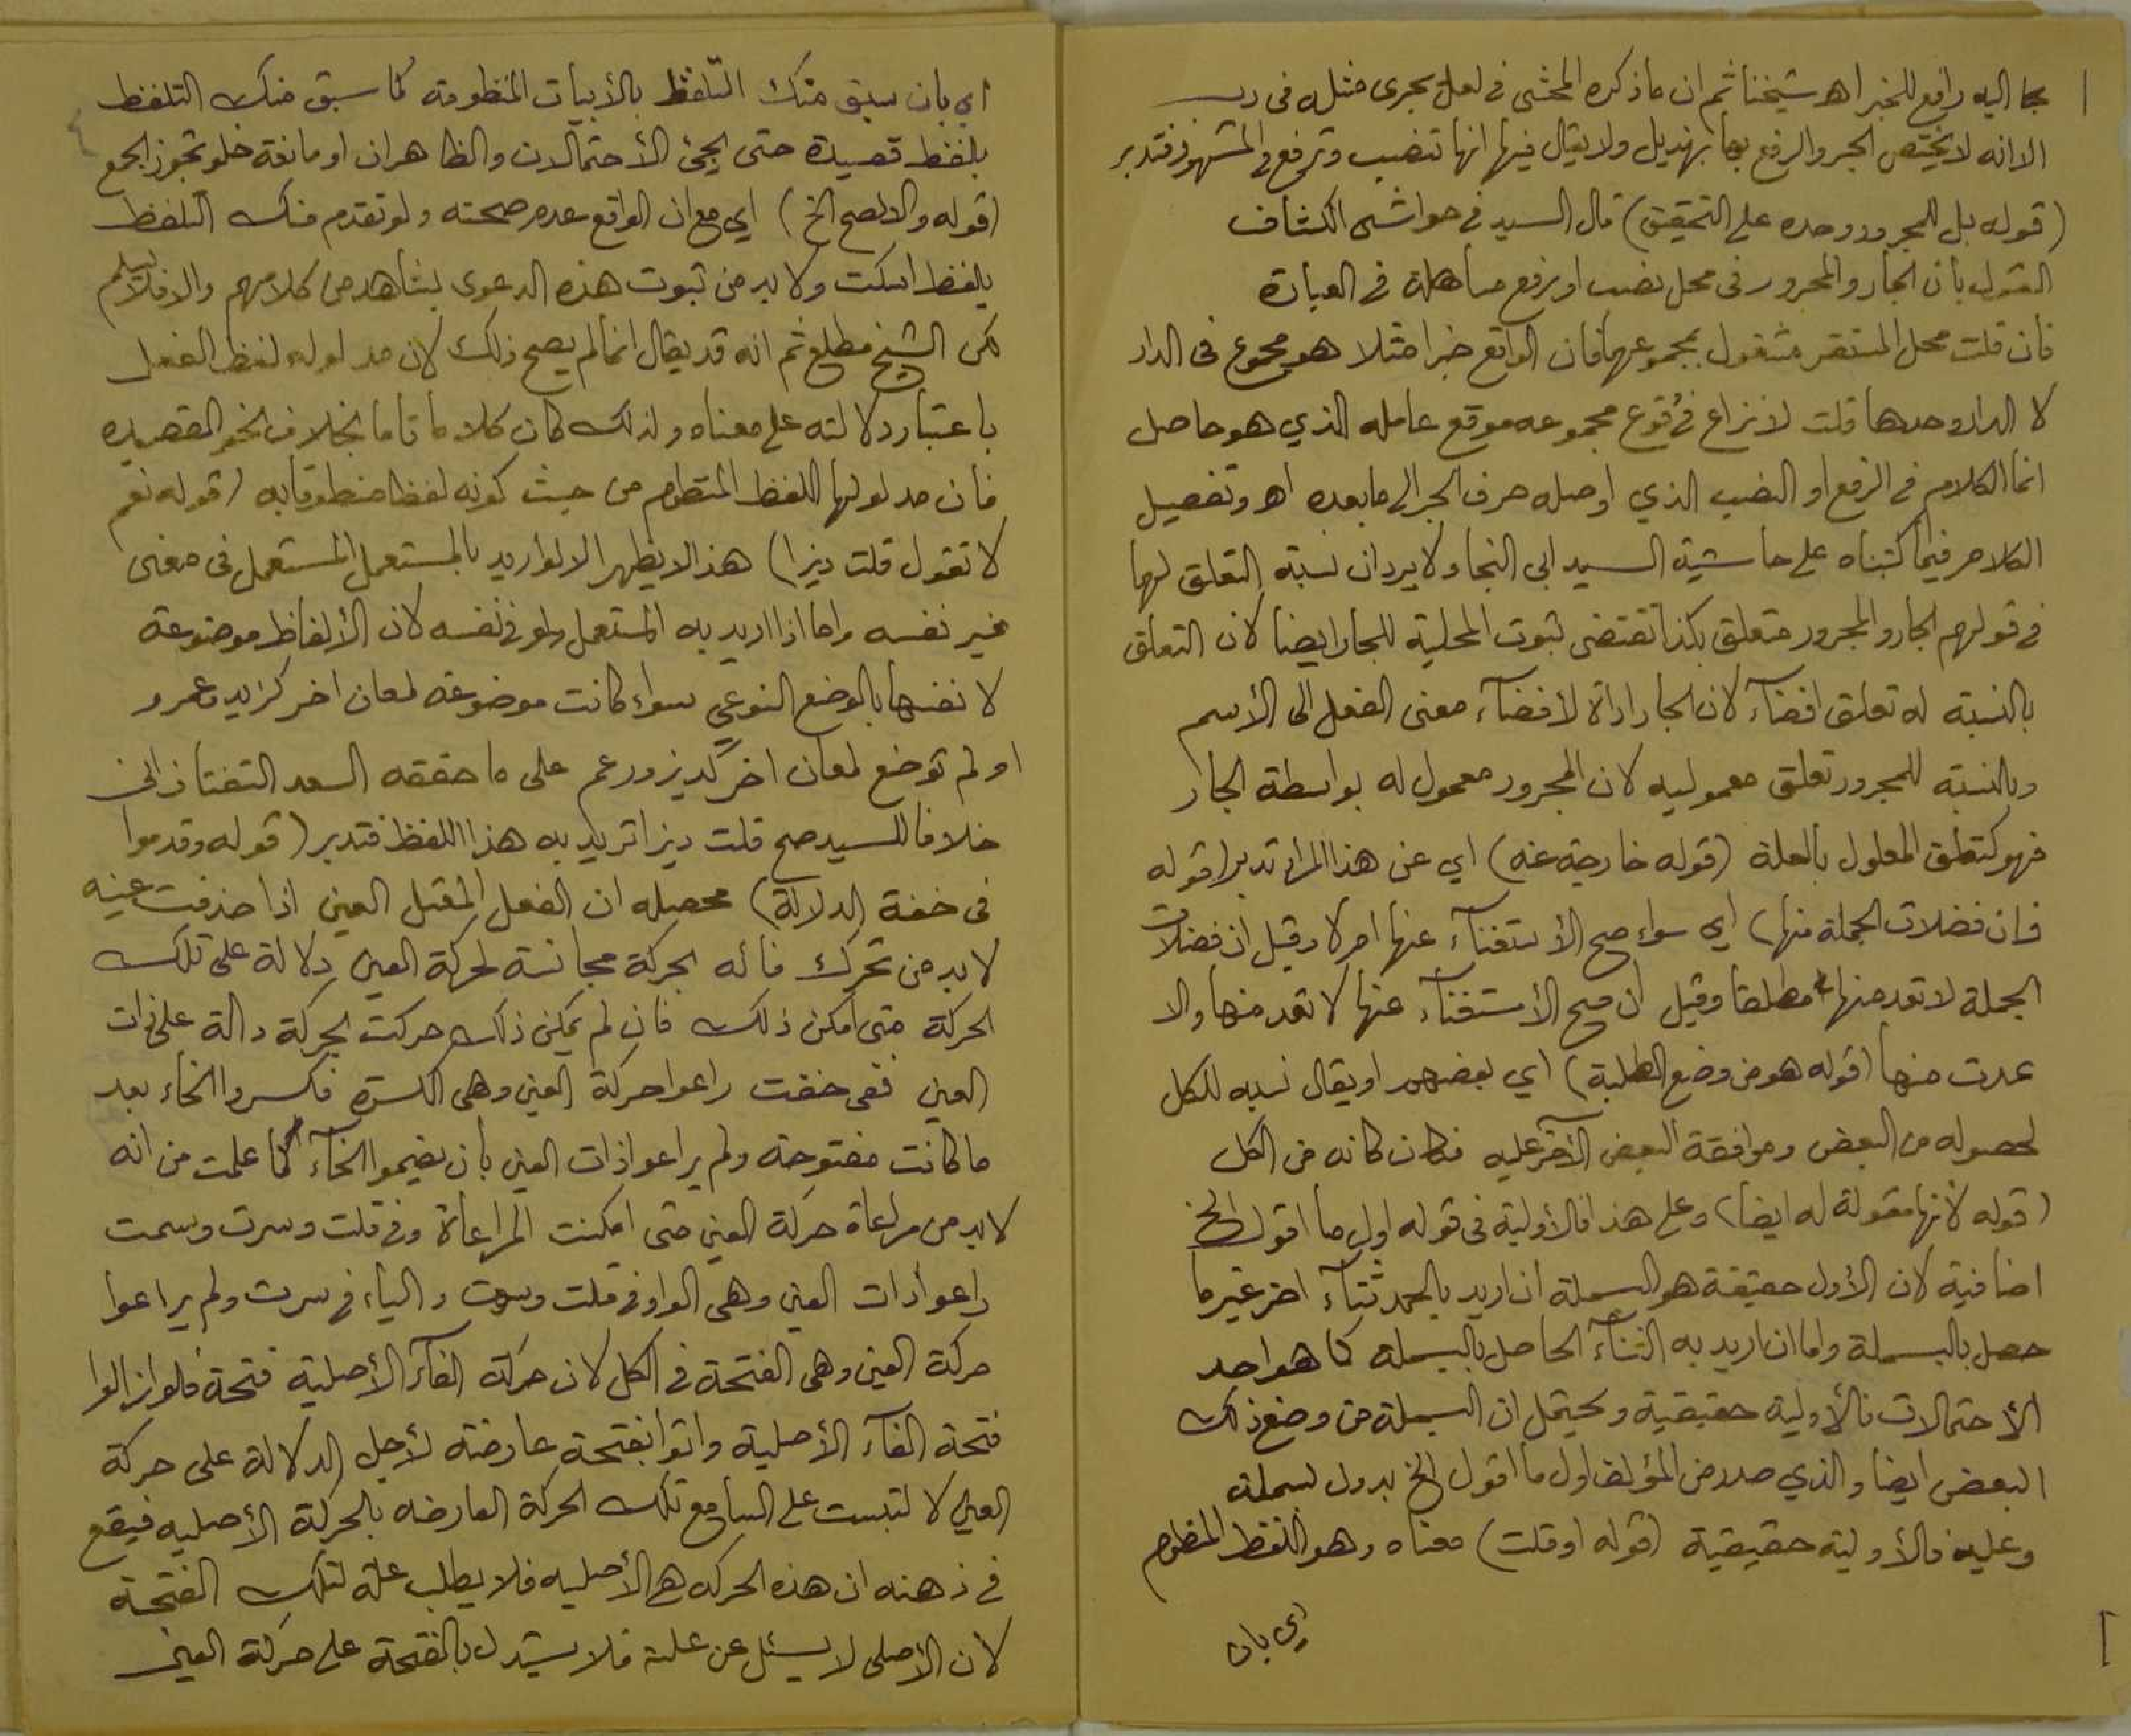 بما اليه رافع للخبر اهـ شيخنا ثم ان ما ذكره المحشى فى لعل يجرى مثله فى رب
الا انه لا يختص الجر والرفع بها بهذيل ولا يقال فيها انها تنصب وترفع فى المشهور فتدبر
(قوله بل للمجرور وحده على التحقيق) قال السيد فى حواشى الكشاف
القول بأن الجار والمجرور فى محل نصب او رفع مساهلة فى العبارة
فان قلت محل المستقر مشغول بمجموعهما فان الواقع خبرا مثلا هو مجموع فى الدار
لا الدار وحدها قلت لا نزاع فى وقوع مجموعه موقع عامله الذي هو حاصل
انما الكلام فى الرفع او النصب الذي اوصله حرف الجر الى ما بعده اهـ وتفصيل
الكلام فيما كتبناه على حاشية السيد ابى النجا ولا يرد ان نسبة التعلق لهما
فى قولهم الجار والمجرور متعلق بكذا تقتضى ثبوت المحلية للجار ايضا لان التعلق
بالنسبة له تعلق افضآء لان الجار اداة لافضآء معنى الفعل الى الأسم
وبالنسبة للمجرور تعلق معموليه لان المجرور معمول له بواسطة الجار
فهو كتعلق المعلول بالعلة (قوله خارجة عنه) اي عن هذا المراد تدبر (قوله
فان فضلات الجملة منها) اي سواء صح الأستغنآء عنها ام لا وقيل ان فضلات
الجملة لا تعد منها مطلقا وقيل ان صح الأستغنآء عنها لا تعد منها والا
عدت منها (قوله هو من وضع الطلبة) اي بعضهم او يقال نسبه للكل
لحصوله من البعض وموافقة البعض الآخر عليه فكان كانه من الكل
(قوله لأنها مقولة له ايضا) وعلى هذا فالأولية فى قوله اول ما اقول الخ
اضافية لان الأول حقيقة هو البسملة ان اريد بالحمد ثنآء اخر غير ما
حصل بالبسملة واما ان اريد به الثنآء الحاصل بالبسملة كما هو احد
الأحتمالات فالأولية حقيقية ويحتمل ان البسملة من وضع ذلك
البعض ايضا والذي صدر من المؤلف اول ما اقول الخ بدون بسملة
وعليه فالأولية حقيقية (قوله او قلت) معناه وهو اللفظ المنظوم
اي بان
اي بان سبق منك التلفظ بالأبيات المنظومة كما سبق منك التلفظ
بلفظ قصيدة حتى يجئ الأحتمالان والظاهران او مانعة خلو تجوز الجمع
(قوله والا لصح الخ) اي مع ان الواقع عدم صحته ولو تقدم منك التلفظ
بلفظ اسكت ولا بد من ثبوت هذه الدعوى بشاهد من كلامهم والا فلا نسلم
لكن الشيخ مطلع ثم انه قد يقال انما لم يصح ذلك لان مدلوله لفظ الفعل
باعتبار دلالته على معناه ولذلك كان كلاما تاما بخلاف نحو القصيده
فان مدلولها اللفظ المنظوم من حيث كونه لفظا منطوقا به (قوله نعم
لا تقول قلت ديزا) هذا لا يظهر الا لو اريد بالمستعمل المستعمل فى معنى
غير نفسه واما اذا اريد به المستعمل ولو فى نفسه لان الألفاظ موضوعة
لانفسها بالوضع النوعي سواء كانت موضوعة لمعان اخر كزيد وعمرو
او لم توضع لمعان اخر كديز ورعم على ما حققه السعد التفتازانى
خلافا للسيد صح قلت ديزا تريد به هذا اللفظ فتدبر (قوله وقدموا
فى خفة الدلالة) محصله ان الفعل المقتل العين اذا حذفت عينه
لا بد من تحرك فائه بحركة مجانسة لحركة العين دلالة على تلك
الحركة متى امكن ذلك فان لم يمكن ذلك حركت بحركة دالة على ذات
العين ففى خفت راعوا حركة العين وهى الكسرة فكسروا الخاء بعد
ما كانت مفتوحة ولم يراعوا ذات العين بأن يضموا الخآء كما علمت من انه
لا بد من مراعاة حركة العين متى امكنت المراعاة وفى قلت وسرت وسمت
راعوا ذات العين وهى الواو فى قلت وسمت والياء فى سرت ولم يراعوا
حركة العين وهى الفتحة فى الكل لان حركة الفآء الأصلية فتحة فلو ازالوا
فتحة الفآء الأصلية واتوا بفتحة عارضة لأجل الدلالة على حركة
العين لالتبست على السامع تلك الحركة العارضه بالحركة الأصليه فيقع
فى ذهنه ان هذه الحركه هى الأصليه فلا يطلب علة لتلك الفتحة
لان الأصلى لا يسئل عن علته فلا يستدل بالفتحة على حركة العين